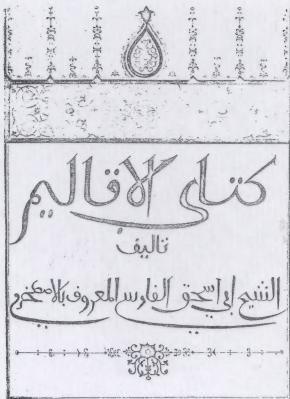 كتاب الاقاليم
تاليف
الشيخ ابي اسحق الفارسي المعروف بالاصطخري